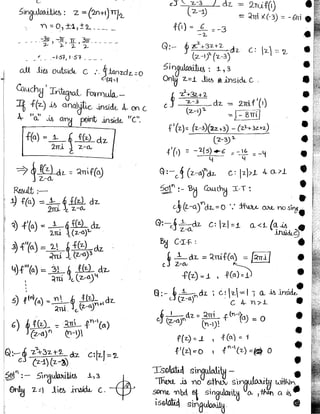 Singularities : z = (2n+1)π/2
n = 0, ±1, ±2, -----
--- -3π/2, -π/2, π/2, 3π/2 -----
-1.57, 1.57
all lies outside C ∴ ∮ tanz dz = 0
Cauchy Integral Formula -
If f(z) is analytic inside & on C
& "a" is any point inside "C".
f(a) = 1/2πi ∮ f(z)/z-a dz
⇒ ∮ f(z)/z-a dz = 2πi f(a)
Result :-
1) f(a) = 1/2πi ∮ f(z)/z-a dz
2) f'(a) = 1/2πi ∮ f(z)/(z-a)² dz
3) f''(a) = 2!/2πi ∮ f(z)/(z-a)³ dz
4) f'''(a) = 3!/2πi ∮ f(z)/(z-a)⁴ dz
5) fⁿ(a) = n!/2πi ∮ f(z)/(z-a)ⁿ⁺¹ dz
6) ∮ f(z)/(z-a)ⁿ = 2πi/(n-1)! fⁿ⁻¹(a)
Q:- ∮ z²+3z+2/(z-1)(z-3) dz C: |z|=2
Solⁿ:- Singularities 1, 3
Only z=1 lies inside C.
∮ z-3/(z-1) dz = 2πi f(1)
= 2πi x (-3) = -6πi
f(1) = 6/-2 = -3
Q:- ∮ z²+3z+2/(z-1)²(z-3) dz C: |z| = 2
Singularities : 1, 3
Only z=1 lies inside C.
∮ z²+3z+2/z-3/(z-1)² dz = 2πi f'(1)
= -8πi
f'(z) = (z-3)(2z+3) - (z²+3z+2)/(z-3)²
f'(1) = -2(5) - 6/4 = -16/4 = -4
Q:- ∮ (z-a)ⁿ dz C: |z|=1 & a>1
Solⁿ:- By Cauchy I.T :
∮ (z-a)ⁿ dz = 0 ∵ there are no sing
Q:- ∮ 1/z-a dz C: |z|=1 a<1 (a is inside C)
By C.I.F :
∮ 1/z-a dz = 2πi f(a) = 2πi
f(z) = 1, f(a) = 1
Q:- ∮ 1/(z-a)ⁿ dz ; C: |z|=1 ; a is inside C & n>1
∮ 1/(z-a)ⁿ dz = 2πi/(n-1)! fⁿ⁻¹(a) = 0
f(z) = 1, f(a) = 1
f'(z) = 0, fⁿ⁻¹(z) = 0
Isolated singularity -
There is no other singularity within
some nbd of singularity 'a', then a is
isolated singularity